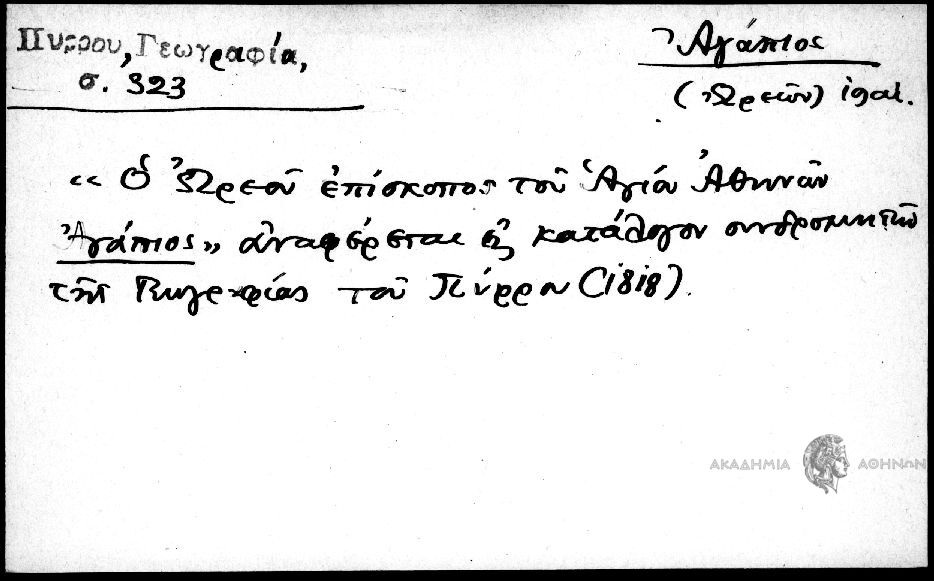 Πυρρου, Γεωγραφία,
σ. 323
Ἀγάπιος
(Ὠρεῶν) ἱσατ.
« Ὁ Ὠρεοῦ ἐπίσκοπος τοῦ Ἁγίου Ἀθηνῶν
Ἀγάπιος» ἀναφέρεται εἰς κατάλογον συνδρομητῶν
τῆς Γεωγραφίας τοῦ Πύρρου (1818).
ΑΚΑΔΗΜΙΑ ΑΘΗΝΩΝ